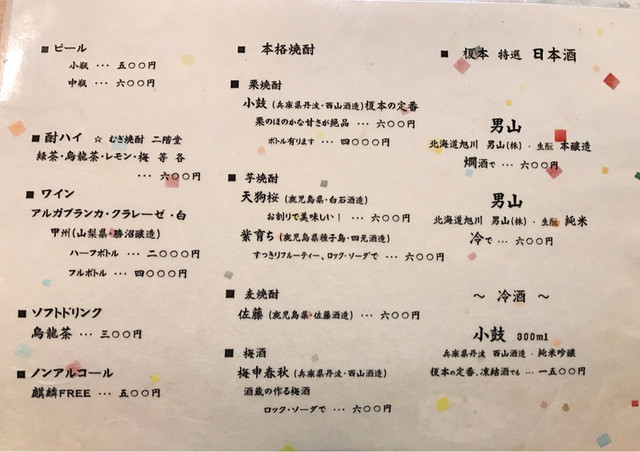 ■ ビール
小瓶 … 五〇〇円
中瓶 … 六〇〇円
■ 酎ハイ ☆ むぎ焼酎 二階堂
緑茶・烏龍茶・レモン・梅 等 各
… 六〇〇円
■ ワイン
アルガブランカ・クラレーゼ・白
甲州(山梨県・勝沼醸造)
ハーフボトル … 二〇〇〇円
フルボトル … 四〇〇〇円
■ ソフトドリンク
烏龍茶 … 三〇〇円
■ ノンアルコール
麒麟FREE … 五〇〇円
■ 本格焼酎
■ 栗焼酎
小鼓(兵庫県丹波・西山酒造)榎本の定番
栗のほのかな甘さが絶品 … 六〇〇円
ボトル有ります … 四〇〇〇円
■ 芋焼酎
天狗桜(鹿児島県・白石酒造)
お割りで美味しい! … 六〇〇円
紫育ち(鹿児島県種子島・四元酒造)
すっきりフルーティー、ロック・ソーダで … 六〇〇円
■ 麦焼酎
佐藤(鹿児島県・佐藤酒造) … 六〇〇円
■ 梅酒
梅申春秋(兵庫県丹波・西山酒造)
酒蔵の作る梅酒
ロック・ソーダで … 六〇〇円
■ 榎本 特選 日本酒
男山
北海道旭川 男山(株)・生酛 本醸造
燗酒で … 六〇〇円
男山
北海道旭川 男山(株)・生酛 純米
冷で … 六〇〇円
〜 冷酒 〜
小鼓 300ml
兵庫県丹波 西山酒造・純米吟醸
榎本の定番、凍結酒でも … 一五〇〇円